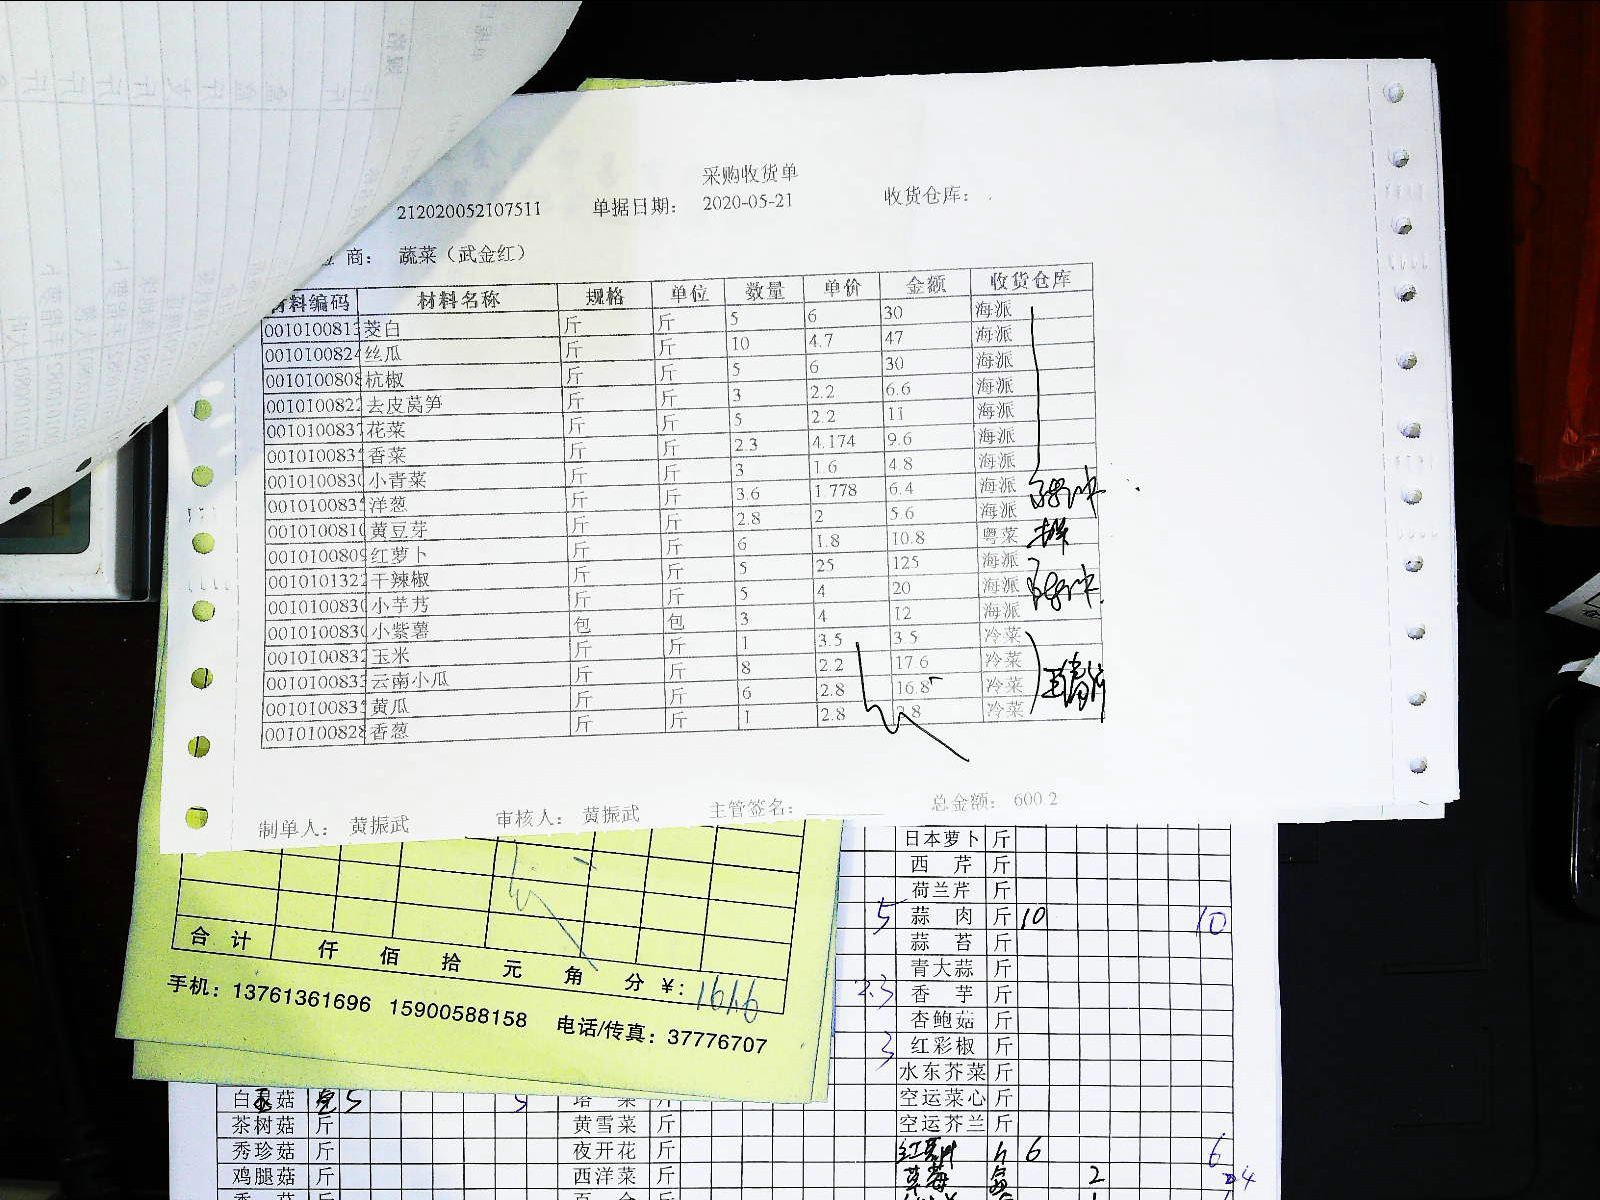 采购收货单
212020052107511 单据日期： 2020-05-21 收货仓库：
商： 蔬菜（武金红）
料编码 材料名称 规格 单位 数量 单价 金额 收货仓库
0010100813 茭白 斤 斤 5 6 30 海派
001010082 丝瓜 斤 斤 10 4.7 47 海派
0010100808 杭椒 斤 斤 5 6 30 海派
001010082 去皮莴笋 斤 斤 3 2.2 6.6 海派
0010100837 花菜 斤 斤 5 2.2 11 海派
001010083 香菜 斤 斤 2.3 4.174 9.6 海派
001010083 小青菜 斤 斤 3 1.6 4.8 海派
001010083 洋葱 斤 斤 3.6 1 778 6.4 海派
001010081 黄豆芽 斤 斤 2.8 2 5.6 海派
0010100809 红萝卜 斤 斤 6 1.8 10.8 粤菜
001010132 干辣椒 斤 斤 5 25 125 海派
001010083 小芋艿 斤 斤 5 4 20 海派
001010083 小紫薯 包 包 3 4 12 海派
001010083 玉米 斤 斤 1 3.5 3 5 冷菜
001010083 云南小瓜 斤 斤 8 2.2 17 6 冷菜
001010083 黄瓜 斤 斤 6 2.8 16.8 冷菜
0010100828 香葱 斤 斤 1 2.8 2.8 冷菜
制单人： 黄振武 审核人： 黄振武 主管签名： 总金额： 600.2
合计 仟 佰 拾 元 角 分 ¥： 1616
手机：13761361696 15900588158 电话/传真：37776707
日本萝卜 斤
西芹 斤
荷兰芹 斤
5 蒜肉 斤 10 10
蒜苔 斤
青大蒜 斤
2.3 香芋 斤
杏鲍菇 斤
3 红彩椒 斤
水东芥菜 斤
白灵菇 5 5 菜 斤 空运菜心 斤
茶树菇 斤 黄雪菜 斤 空运芥兰 斤
秀珍菇 斤 夜开花 斤 6 6
鸡腿菇 斤 西洋菜 斤 草莓 2